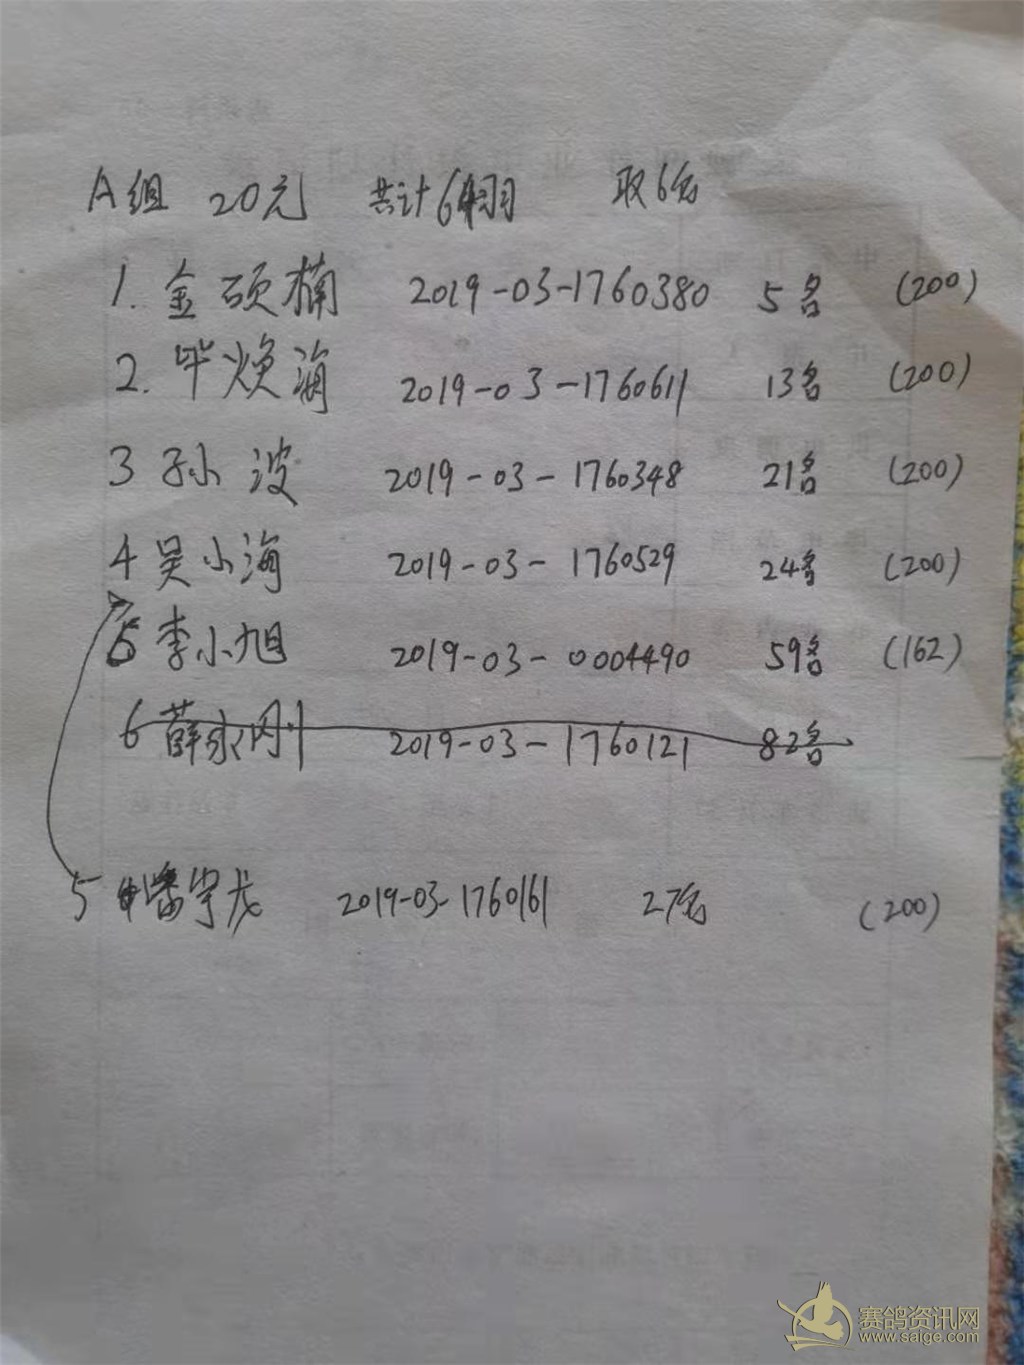 A组 20元 共计64羽 取6名
1. 金硕楠 2019-03-1760380 5名 (200)
2. 毕焕海 2019-03-1760611 13名 (200)
3 孙波 2019-03-1760348 21名 (200)
4 吴小海 2019-03-1760529 24名 (200)
6 李小旭 2019-03-0004490 59名 (162)
6 薛永刚 2019-03-1760121 82名
5 潘宇龙 2019-03-1760161 27名 (200)
赛鸽资讯网
www.saige.com